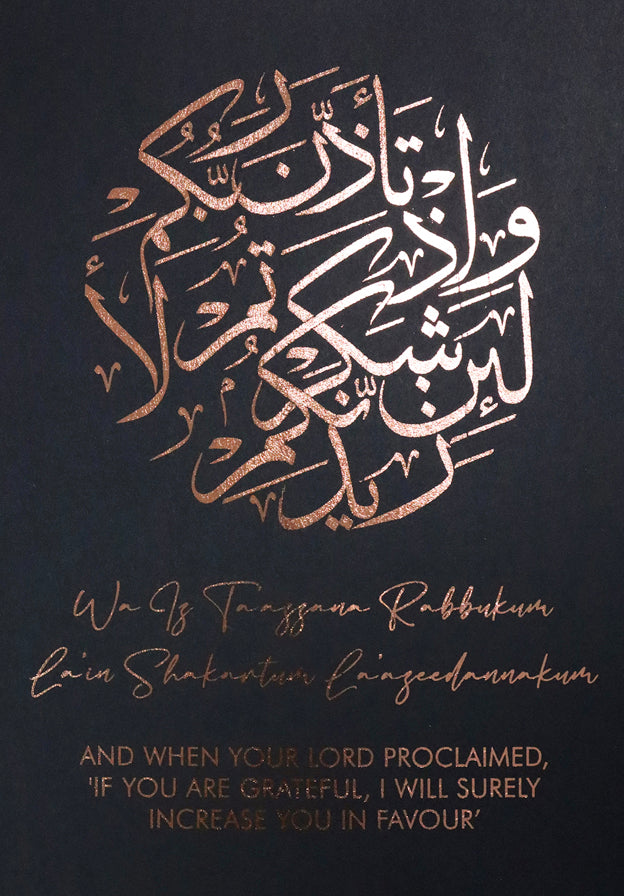 وَإِذْ تَأَذَّنَ رَبُّكُمْ
لَئِن شَكَرْتُمْ لَأَ
زِيدَنَّكُمْ
Wa Iz Ta'azzana Rabbukum
La'in Shakartum La'azeedannakum
AND WHEN YOUR LORD PROCLAIMED,
'IF YOU ARE GRATEFUL, I WILL SURELY
INCREASE YOU IN FAVOUR'